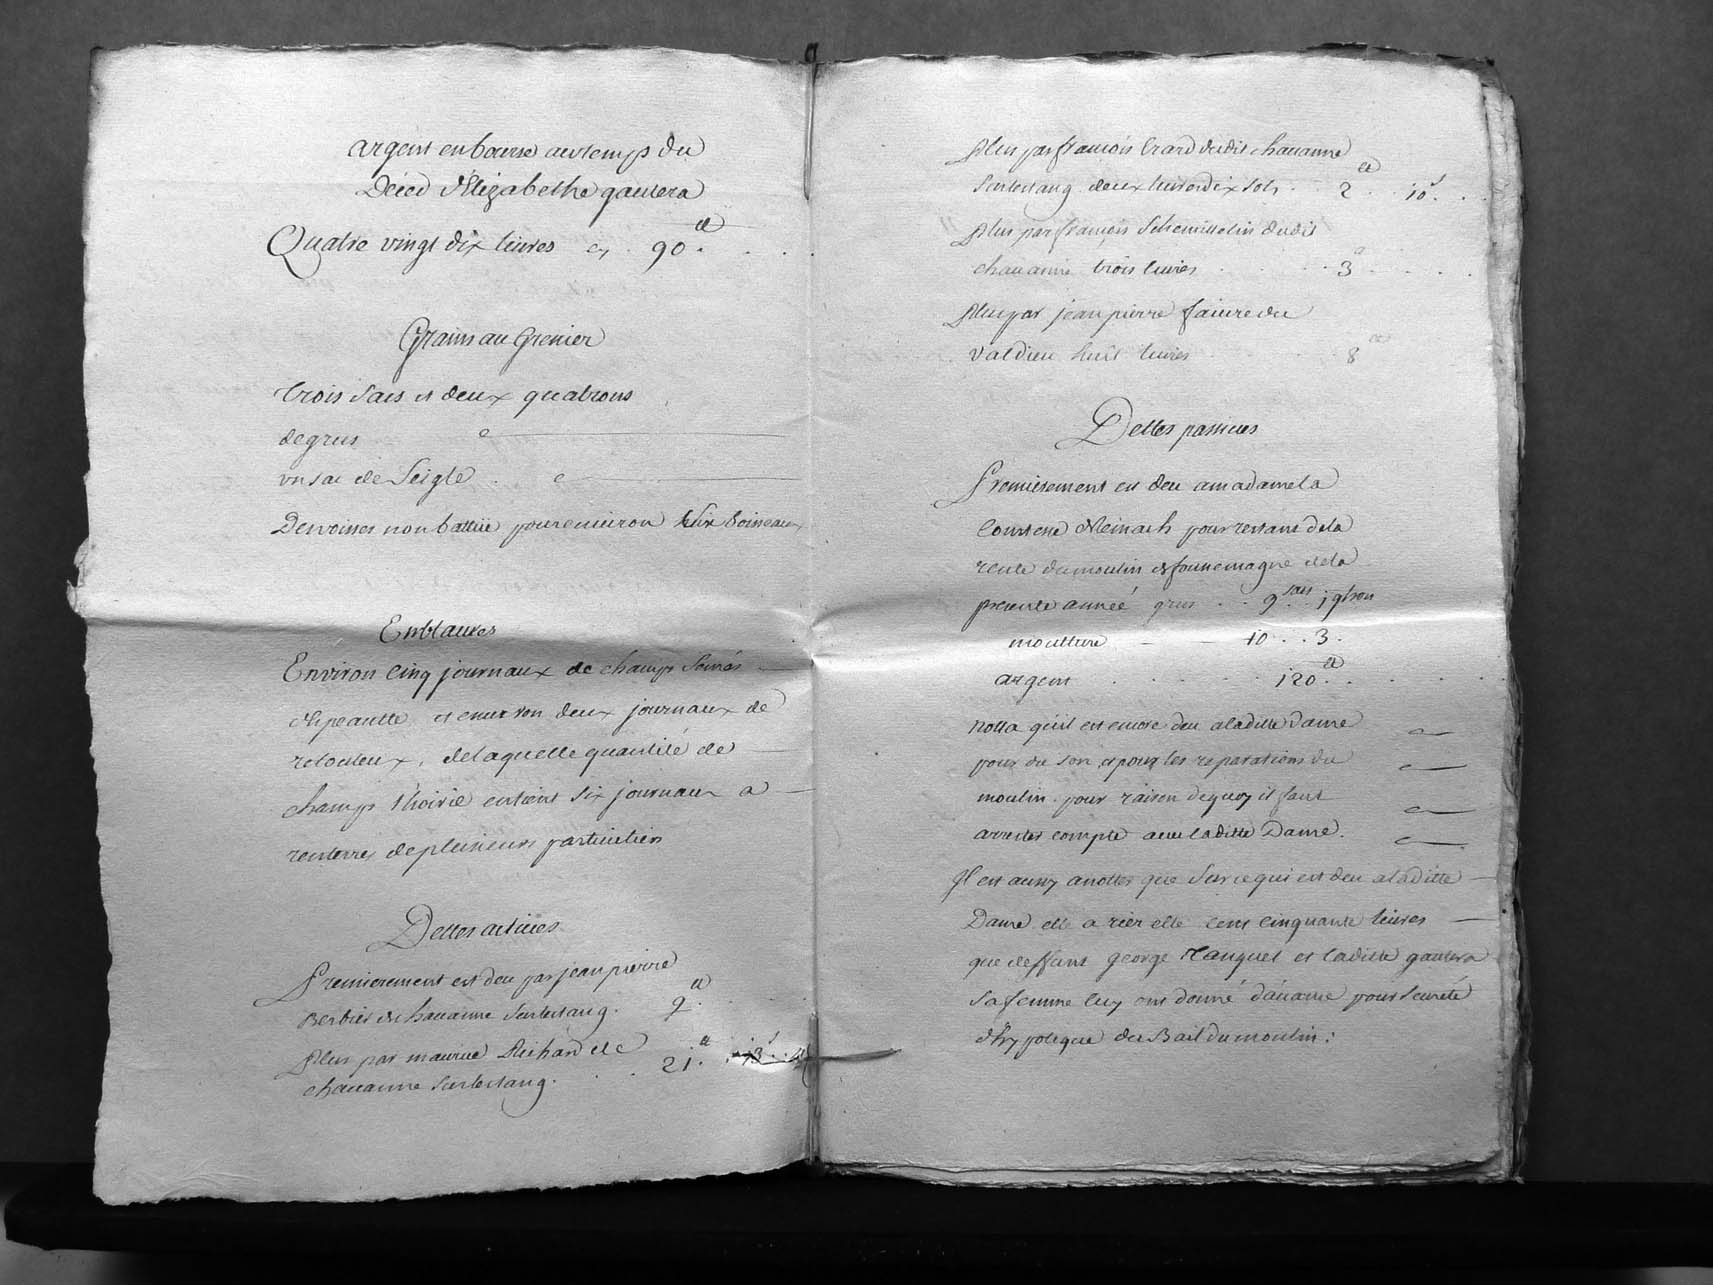 argent en bourse au temps du
Déced d'Elizabethe gautera
Quatre vingt dix livres cy . 90.ᵗᵗ . .
Grains au Grenier
trois sacs et deux quatrons
de grus
un sac de Seigle .
Des voines non battüe pour environ six boiseaux
Emblaures
Environ cinq journaux de champs semés
d'Epeautte et environ deux journaux de
retouleux, de laquelle quantité de
champs l'hoirie en tient six journaux a
renterres de plusieurs particuliers
Dettes actives
Premierement est deu par jean pierre
Berbier de chavanne sur lestang . 9ᵗᵗ . .
Plus par maurice Richard de
chavanne sur lestang . . . 21.ᵗᵗ
Plus par françois Erard dudit chavanne
sur lestang . deux livres dix sols . 2ᵗᵗ . 10ˢ . .
Plus par françois dudit
chavanne trois livres . . . 3ᵗᵗ . . .
Plus par jean pierre faivre du
valdieu huit livres . . . 8ᵗᵗ
Dettes passives
Premierement est deu a madame la
Comtesse de Reinach pour restant de la
rente du moulin de founemagne de la
presente année grus . . 9 sacs 1 qtron
moulture — — 10 . . 3 .
argent . . . . . 120ᵗᵗ . . . .
notta qu'il est encore deu a la ditte Dame
pour du son et pour les reparations du
moulin . pour raison de quoy il faut
arrester compte avec la ditte Dame .
Il est aussy a notter que sur ce qui est deu a la ditte
Dame elle a rier elle cent cinquante livres
que deffunt george Tanguel et la ditte gautera
sa femme luy ont donné d'avance pour seureté
d'hypoteque du Bail du moulin :